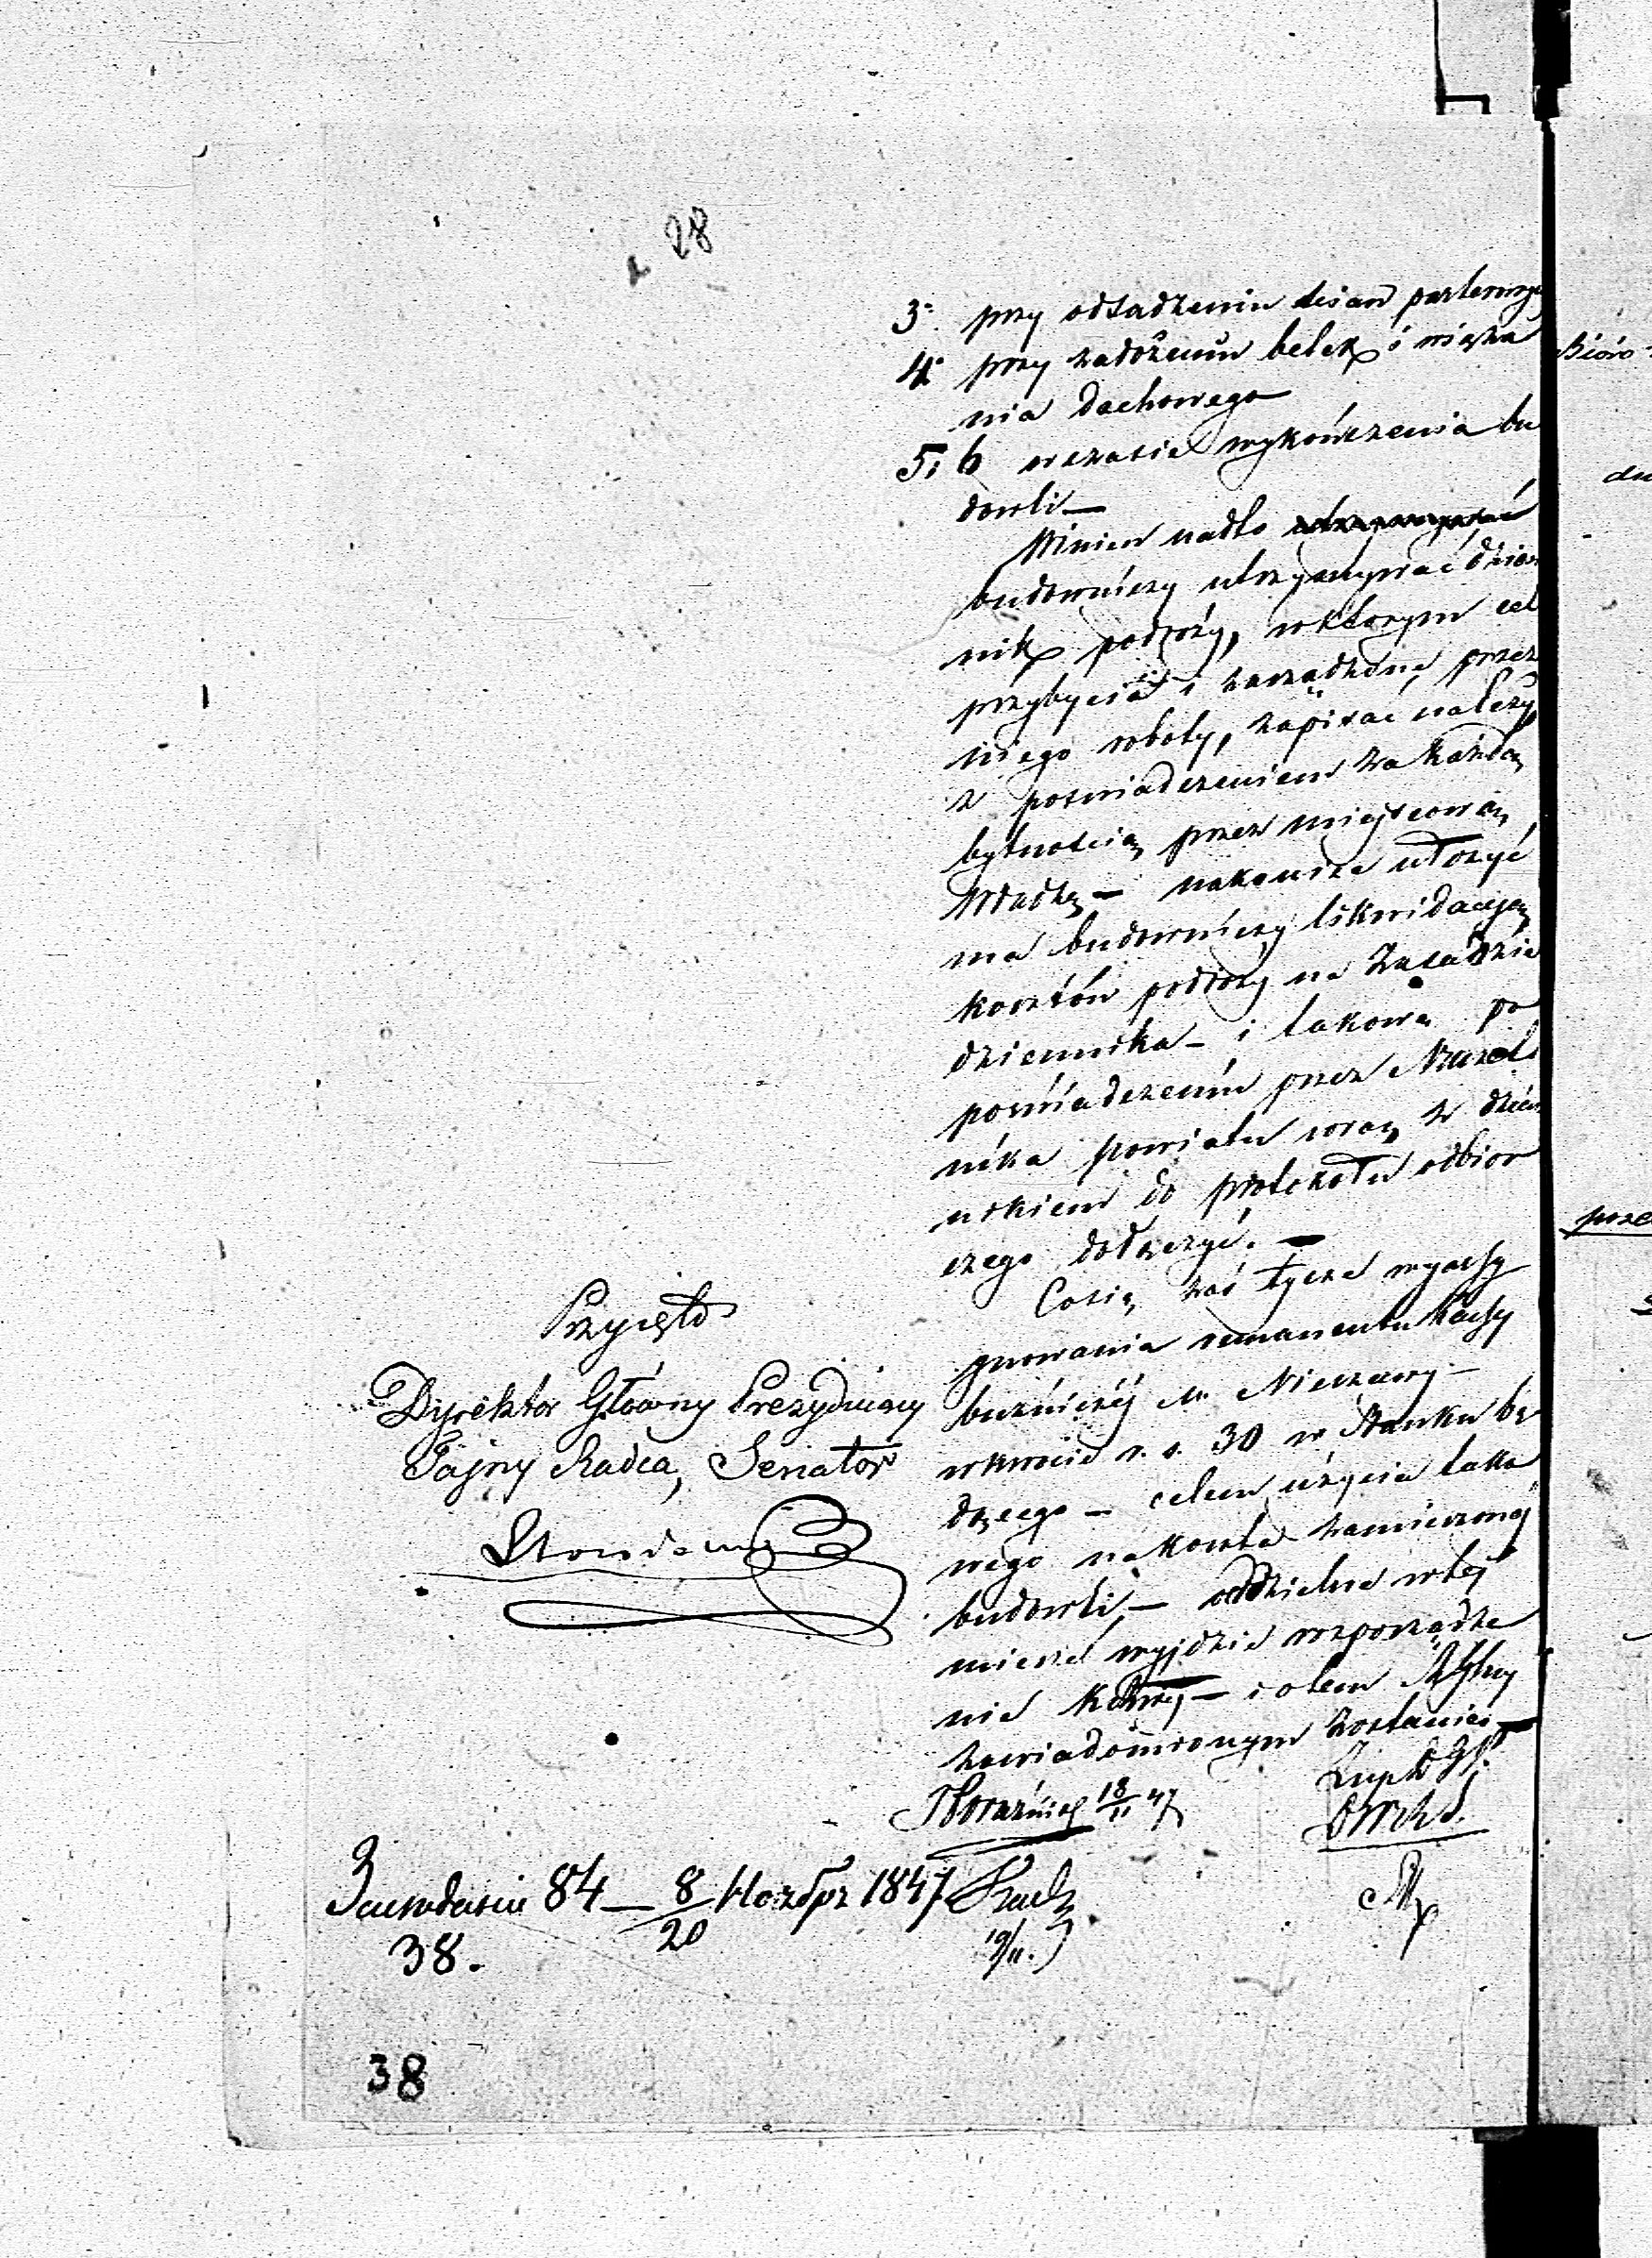 28
3. przy odsadzeniu ścian parterowych
4. przy założeniu belek i wiąza
nia dachowego
5 i 6 wczasie wykończenia bu
dowli —
Winien nadto
budowniczy utrzymywać dzien
nik podróży, wktórym cel
przybycia i zarządzone przez
niego roboty, zapisać należy,
z poświadczeniem za każdą
bytnością przez miejscową
Władzę — nakoniec ułożyć
ma budowniczy likwidacyą
kosztów podróży na zasadzie
dziennika — i takową po
poświadczeniu przez Naczel
nika powiatu wraz z dzien
nikiem do protokołu odbior
czego dołączyć. —
Cosię zaś tycze wyassy
gnowania remanentu Kassy
bużniczéj M. Nieszawy —
wkwocie r. s. 30 w Banku bę
dącego — celem użycia tako
wego nakoszta zamierzonéj
budowli, — oddzielne wtéj
mierze wyjdzie rozporządze
nie — i otem
zawiadomionym zostanie —
18/11 47
19/11.
Przyięto
Dyrektor Główny Prezydujący
Tajny Radca, Senator
84 — 8/20 Ноября 1847
38.
38
Bióro